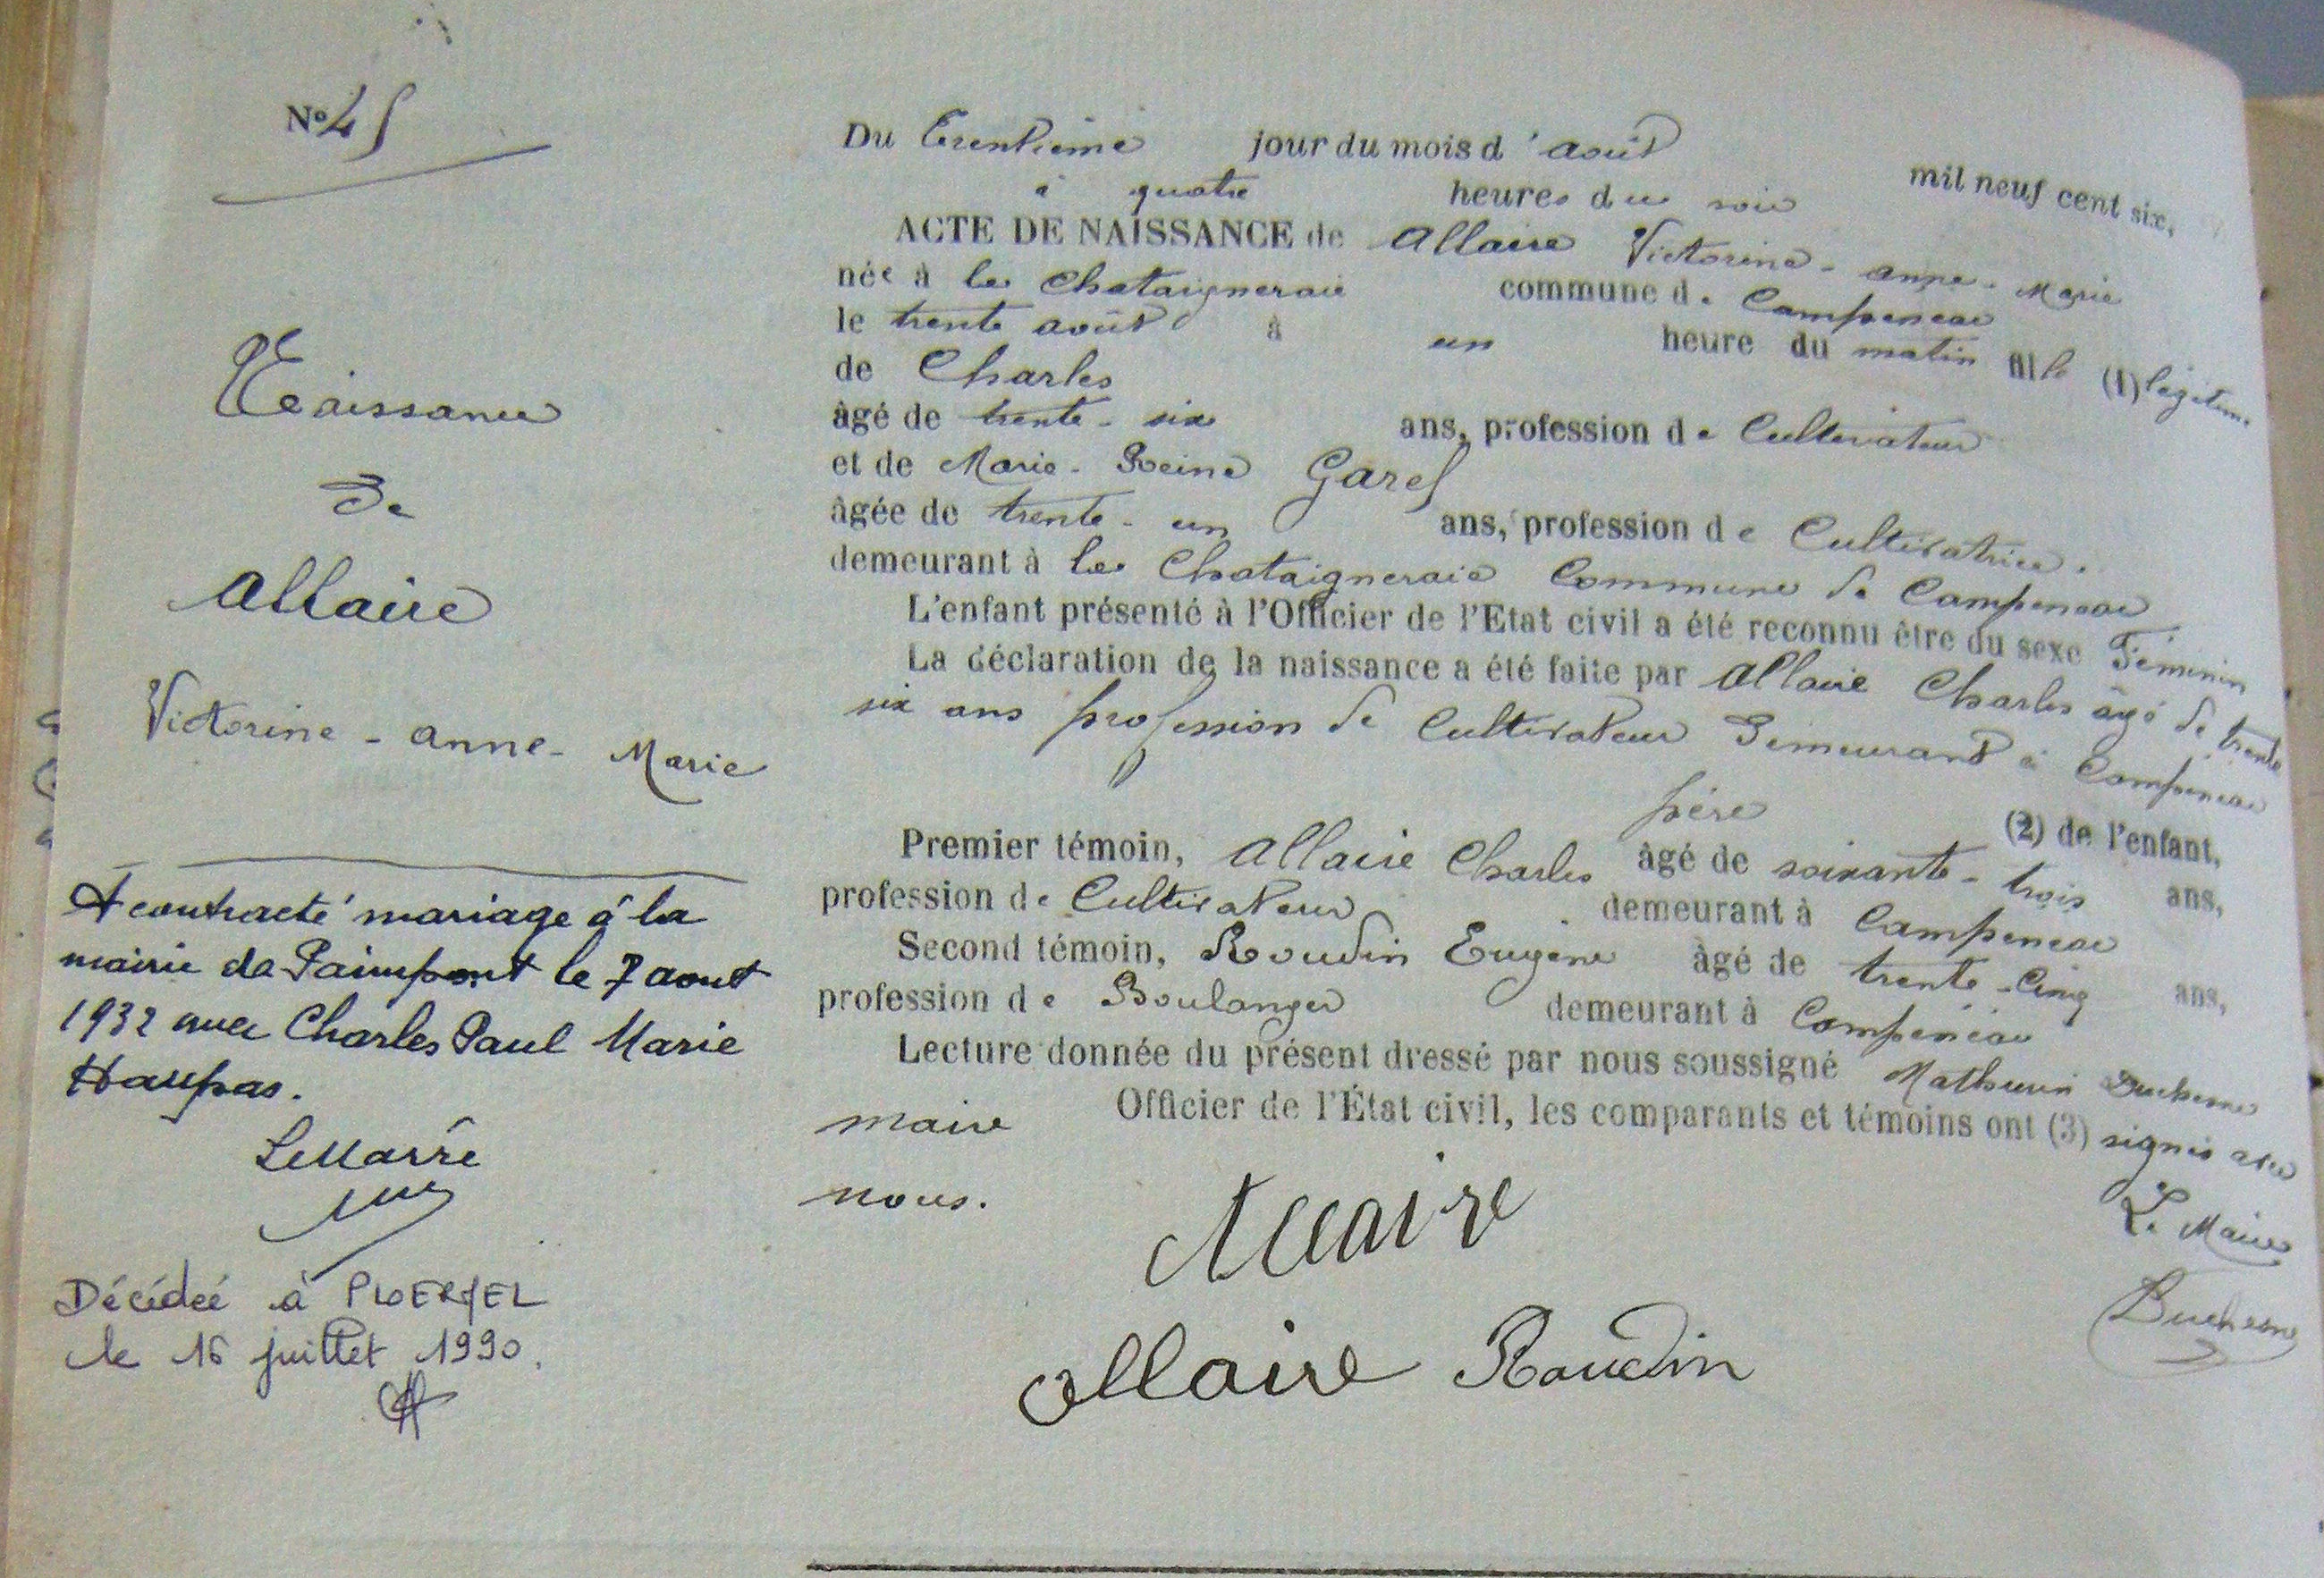 N° 45
Naissance
de
Allaire
Victorine - Anne - Marie
A contracté mariage à la
mairie de Paimpont le 7 aout
1932 avec Charles Paul Marie
Haupas.
Lemarré
Décédée à PLOERMEL
le 16 juillet 1990.
Du trentième jour du mois d'août mil neuf cent six,
à quatre heures du soir
ACTE DE NAISSANCE de Allaire Victorine - Anne - Marie
née à la Chataigneraie commune de Campeneac
le trente août à un heure du matin fille (1) légitime
de Charles
âgé de trente - six ans, profession de Cultivateur
et de Marie - Reine Garel
âgée de trente - un ans, profession de Cultivatrice.
demeurant à la Chataigneraie Commune de Campeneac
L'enfant présenté à l'Officier de l'Etat civil a été reconnu être du sexe Féminin
La déclaration de la naissance a été faite par Allaire Charles âgé de trente
six ans profession de Cultivateur demeurant à Campeneac
père (2) de l'enfant,
Premier témoin, Allaire Charles âgé de soixante - trois ans,
profession de Cultivateur demeurant à Campeneac
Second témoin, Roudin Eugène âgé de trente - cinq ans,
profession de Boulanger demeurant à Campeneac
Lecture donnée du présent dressé par nous soussigné Mathurin Duchesne
maire Officier de l'État civil, les comparants et témoins ont (3) signés avec
nous.
Le Maire
Allaire
Duchesne
Allaire Roudin